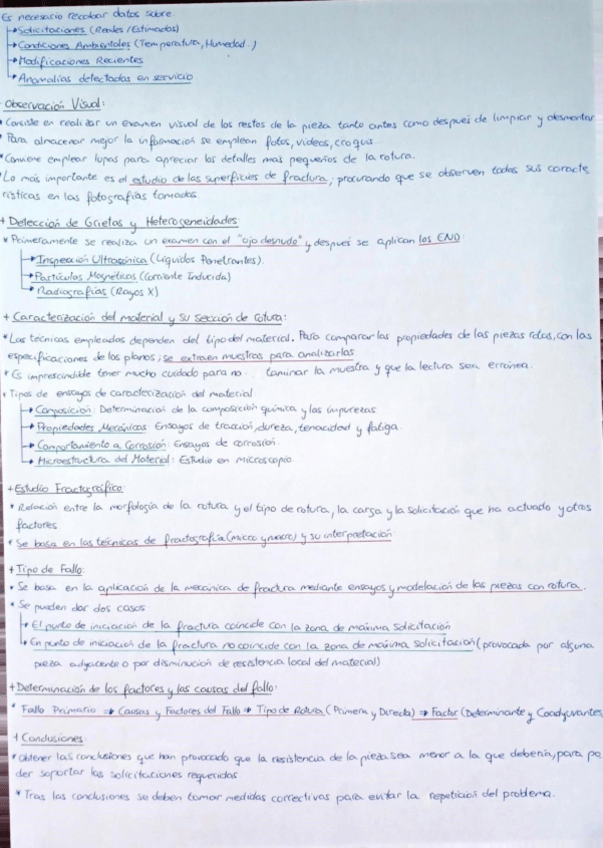 Es necesario recabar datos sobre:
→ Solicitaciones (Reales / Estimadas)
→ Condiciones Ambientales (Temperatura, Humedad..)
→ Modificaciones Recientes
→ Anomalías detectadas en servicio
Observación Visual:
* Consiste en realizar un examen visual de los restos de la pieza tanto antes como despues de limpiar y desmontar
* Para almacenar mejor la información se emplean fotos, videos, croquis.
* Conviene emplear lupas para apreciar los detalles mas pequeños de la rotura.
* Lo mas importante es el estudio de las superficies de fractura; procurando que se observen todas sus caracte
rísticas en las fotografías tomadas.
+ Detección de Grietas y Heterogeneidades
* Primeramente se realiza un examen con el "ojo desnudo" y despues se aplican los END:
→ Inspección Ultrasónica (Líquidos Penetrantes).
→ Partículas Magnéticas (Corriente Inducida)
→ Radiografías (Rayos X)
+ Caracterización del material y su sección de rotura:
* Las técnicas empleadas dependen del tipo del material. Para comparar las propiedades de las piezas rotas, con las
especificaciones de los planos; se extraen muestras para analizarlas
* Es imprescindible tener mucho cuidado para no taminar la muestra y que la lectura sea errónea.
* Tipos de ensayos de caracterización del material
→ Composición: Determinación de la composición química y las impurezas
→ Propiedades Mecánicas: Ensayos de tracción, dureza, tenacidad y fatiga.
→ Comportamiento a Corrosión: Ensayos de corrosión.
→ Microestructura del Material: Estudio en microscopio.
+ Estudio Fractográfico:
* Relación entre la morfología de la rotura y el tipo de rotura, la carga y la solicitación que ha actuado y otros
factores
* Se basa en las técnicas de fractografía (micro y macro) y su interpretación
+ Tipo de Fallo:
* Se basa en la aplicación de la mecánica de fractura mediante ensayos y modelación de las piezas con rotura.
* Se pueden dar dos casos
→ El punto de iniciación de la fractura coincide con la zona de máxima solicitación
→ En punto de iniciación de la fractura no coincide con la zona de máxima solicitación (provocada por alguna
pieza adyacente o por disminución de resistencia local del material)
+ Determinación de los factores y las causas del fallo:
* Fallo Primario ⇒ Causas y Factores del Fallo ⇒ Tipo de Rotura (Primera y Directa) ⇒ Factor (Determinante y Coadyuvantes
+ Conclusiones:
* obtener las conclusiones que han provocado que la resistencia de la pieza sea menor a la que debería, para po
der soportar las solicitaciones requeridas
* Tras las conclusiones se deben tomar medidas correctivas para evitar la repetición del problema.